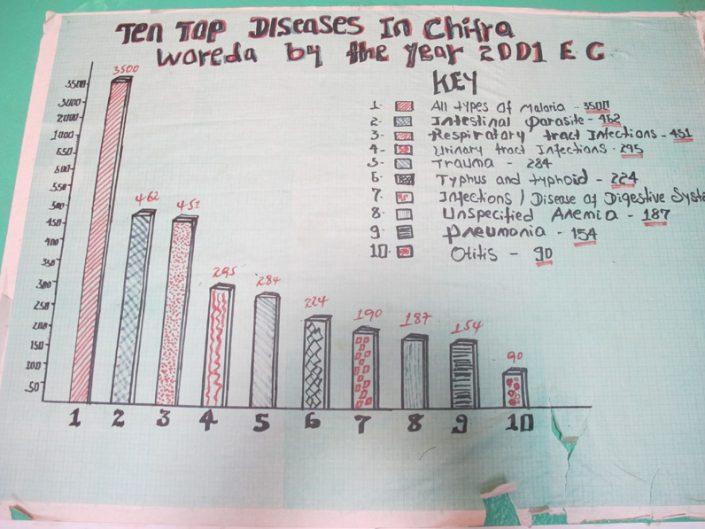 Ten Top Diseases In Chifra
Woreda by the Year 2001 E C
KEY
1. All types of Malaria - 3500
2- Intestinal parasite - 462
3- Respiratory tract Infections - 451
4- Urinary tract Infections - 295
5- Trauma - 284
6- Typhus and typhoid - 224
7 Infections / Disease of Digestive Syste
8 Unspecified Anemia - 187
9 pneumonia - 154
10. Otitis - 90
3500
462
451
295
284
224
190
187
154
90
3500
3000
2000
1000
650
550
500
450
400
350
300
250
200
150
100
50
1 2 3 4 5 6 7 8 9 10